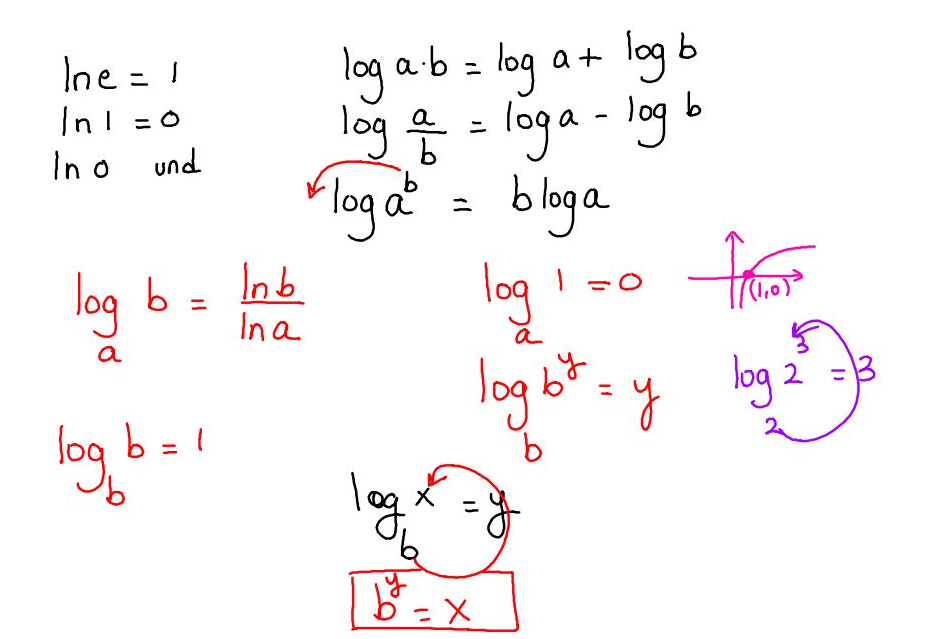 ln e = 1
ln 1 = 0
ln 0 und
log a·b = log a + log b
log a/b = log a - log b
log a^b = b log a
log_a b = ln b / ln a
log_a 1 = 0
(1,0)
log_b b^y = y
log_2 2^3 = 3
log_b b = 1
log_b x = y
b^y = x